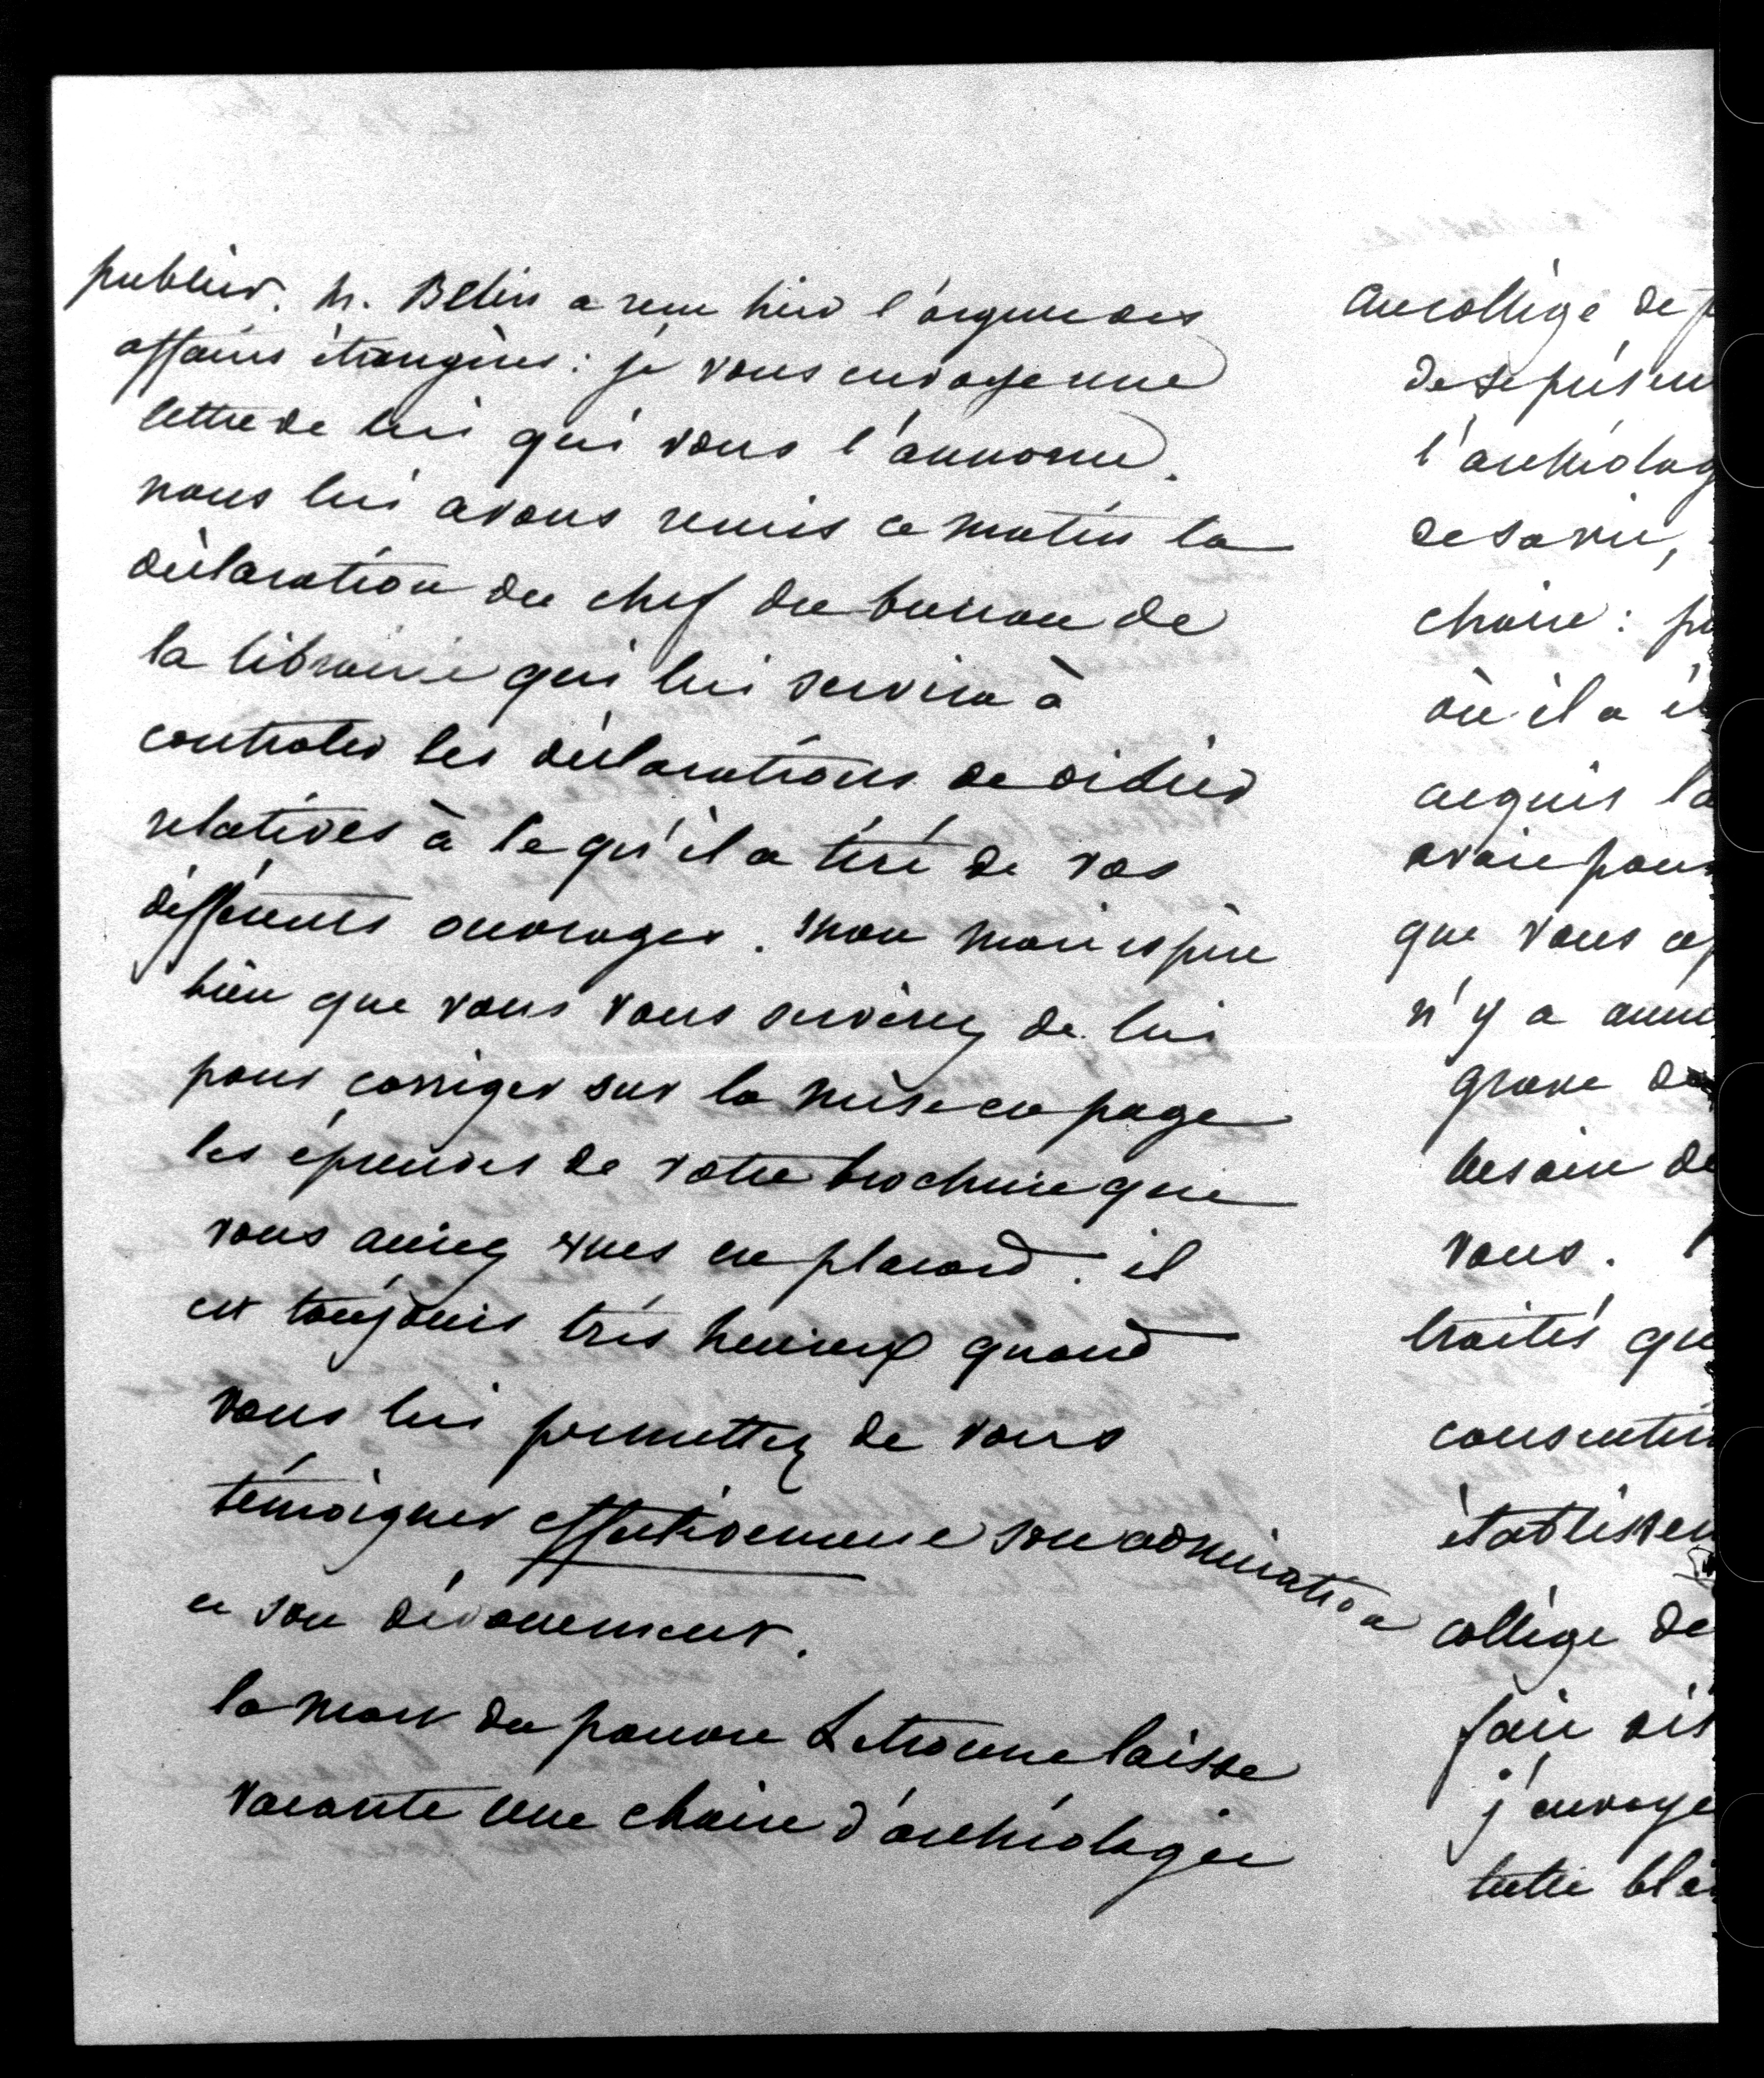 publier. M. Belin a reçu hier l'argent des
affaires étrangères : je vous envoye une
lettre de lui qui vous l'annonce.
nous lui avons remis ce matin la
déclaration du chef du bureau de
la librairie qui lui servira à
controler les déclarations de didier
relatives à ce qu'il a tiré de vos
différents ouvrages. Mon mari espère
bien que vous vous servirez de lui
pour corriger sur la mise en page
les épreuves de votre brochure que
vous aurez vues en placard. il
est toujours très heureux quand
vous lui permettez de vous
témoigner effectivement son admiration
et son dévouement.
la mort du pauvre Letronne laisse
vacante une chaire d'archéologie
au collège de
de se présen
l'archéolog
de sa vie,
chaire : p
où il a é
acquis la
avoir pour
que vous
n'y a aucu
grave de
besoin de
vous.
traités qu
consentir
établissem
collège de
fair
j'envoye
lettre bla